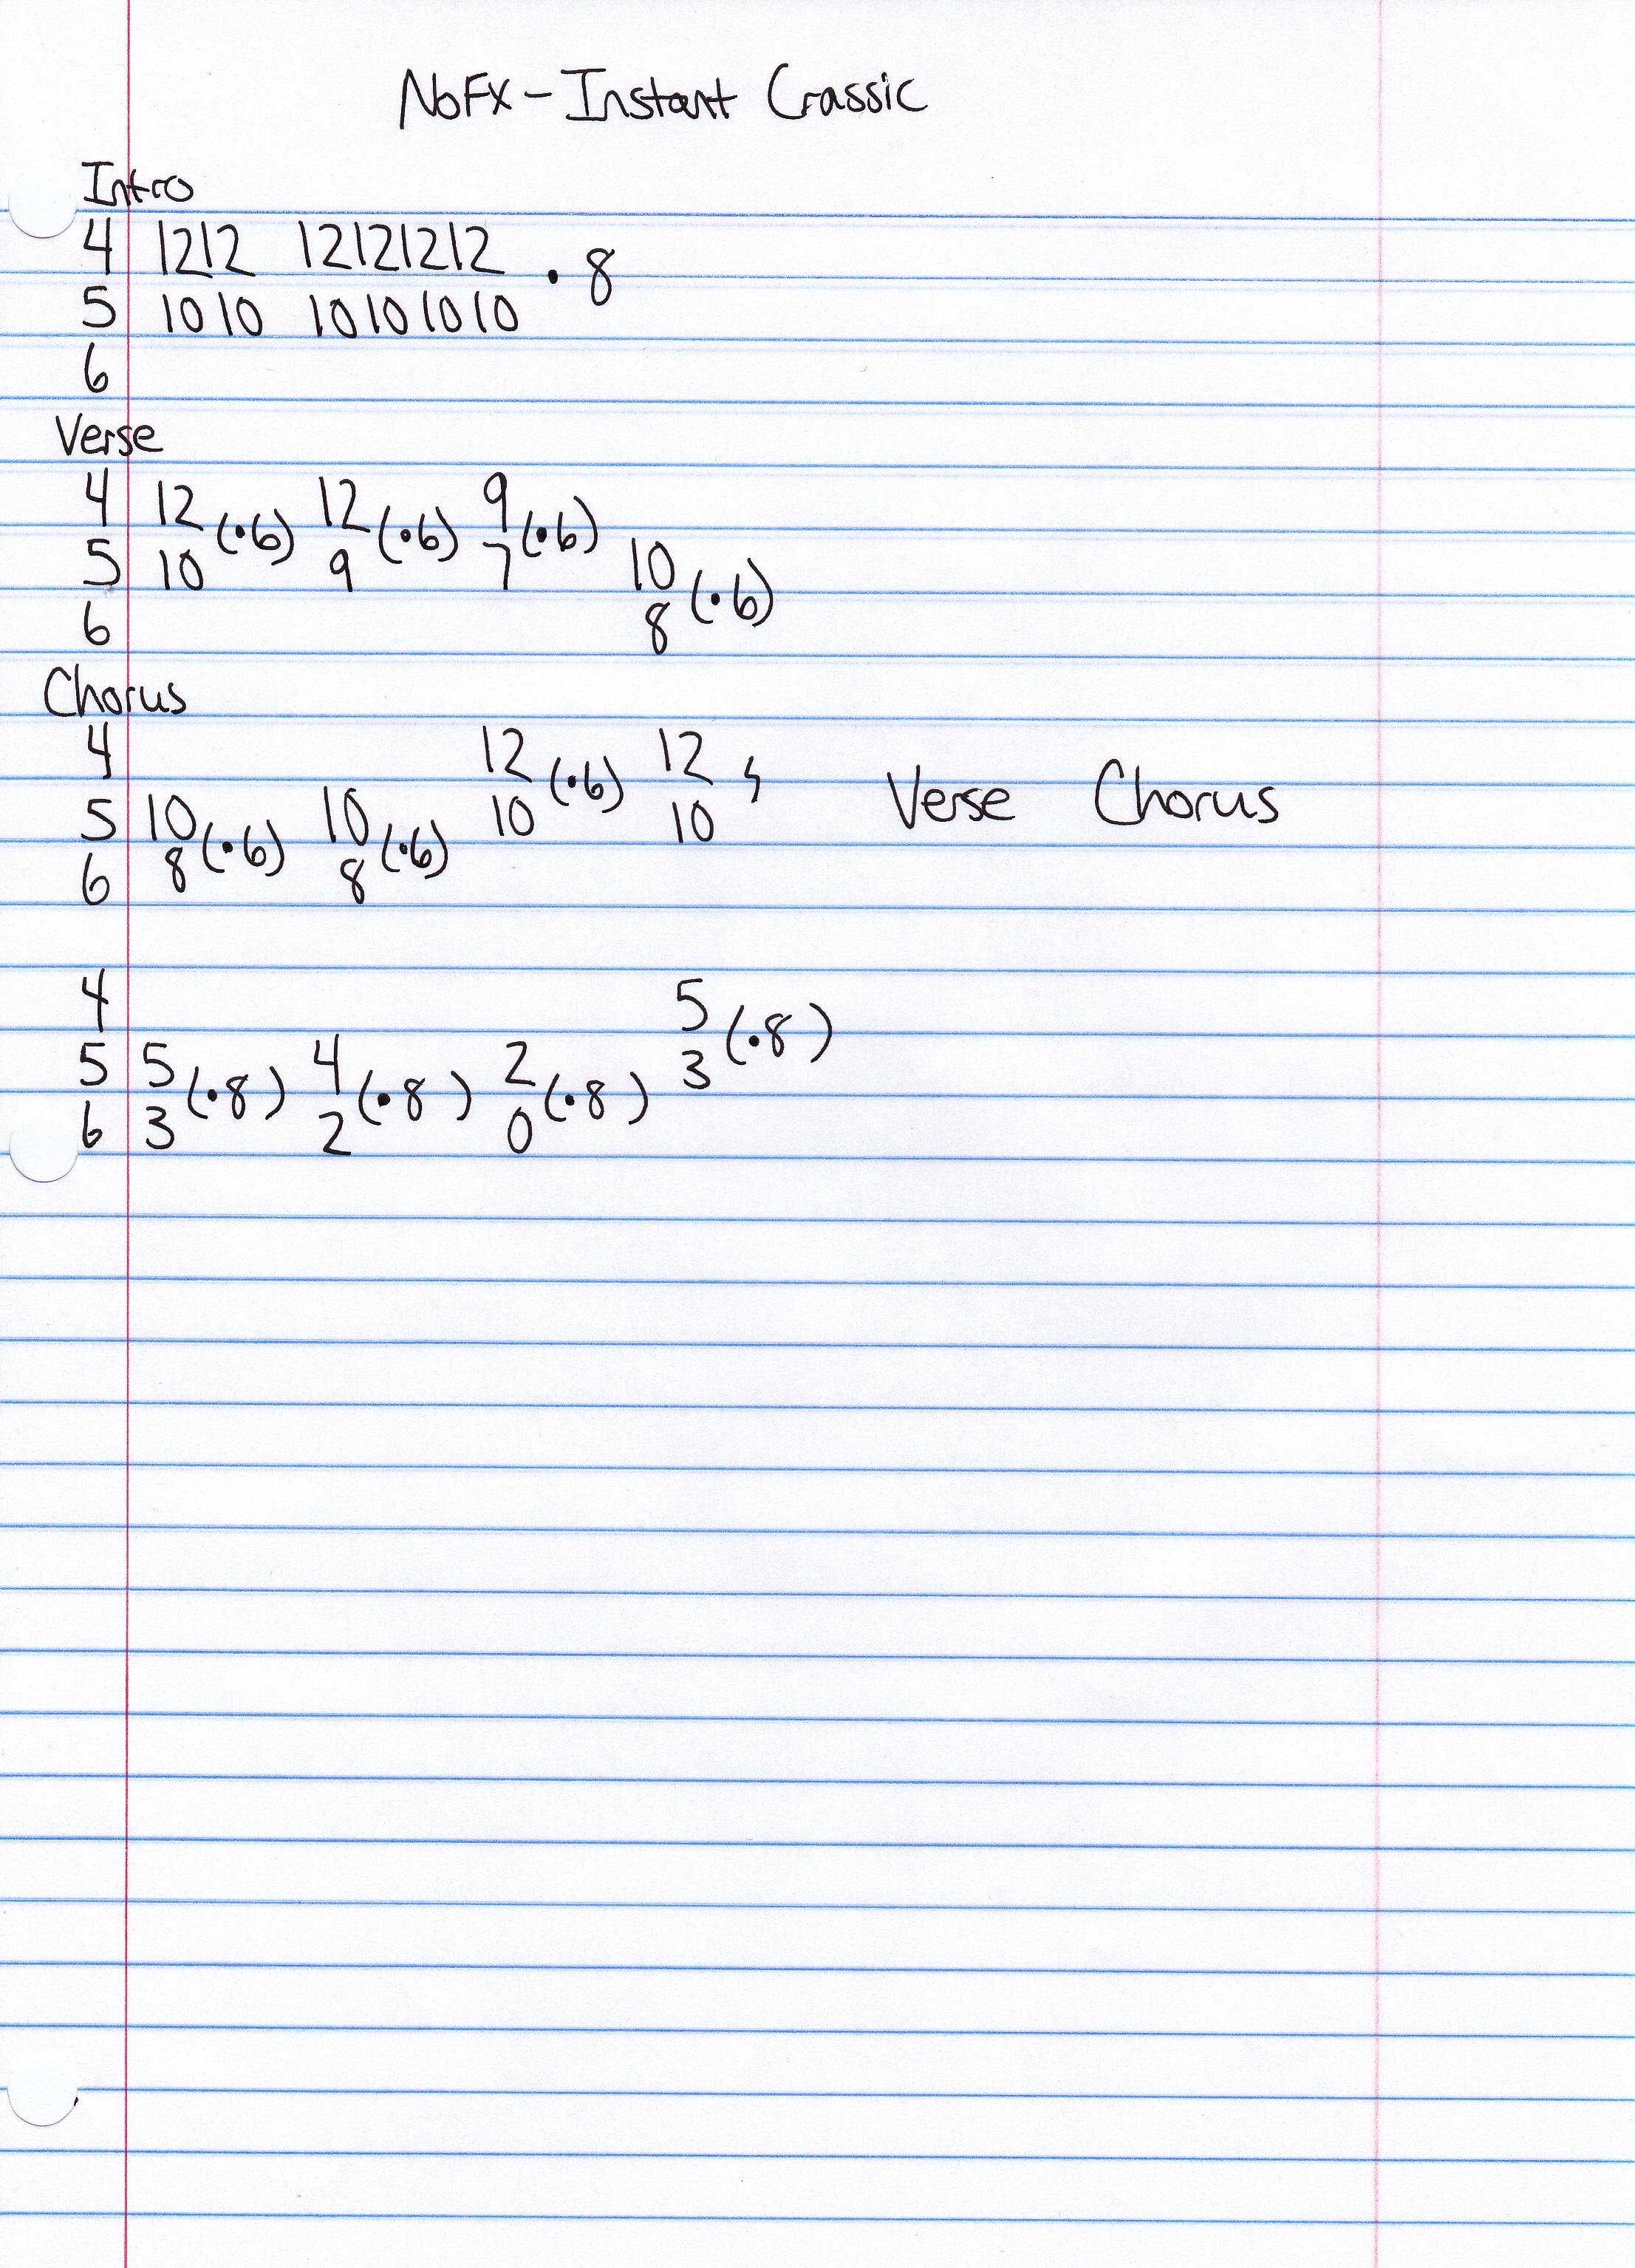 NoFX - Instant Crassic
Intro
4 1212 12121212 . 8
5 1010 10101010
6
Verse
4 12 (.6) 12 (.6) 9 (.6)
5 10 9 7 10 (.6)
6 8
Chorus
4 12 (.6) 12 Verse Chorus
5 10 (.6) 10 (.6) 10 10
6 8 8
4 5 (.8)
5 5 (.8) 4 (.8) 2 (.8) 3
6 3 2 0